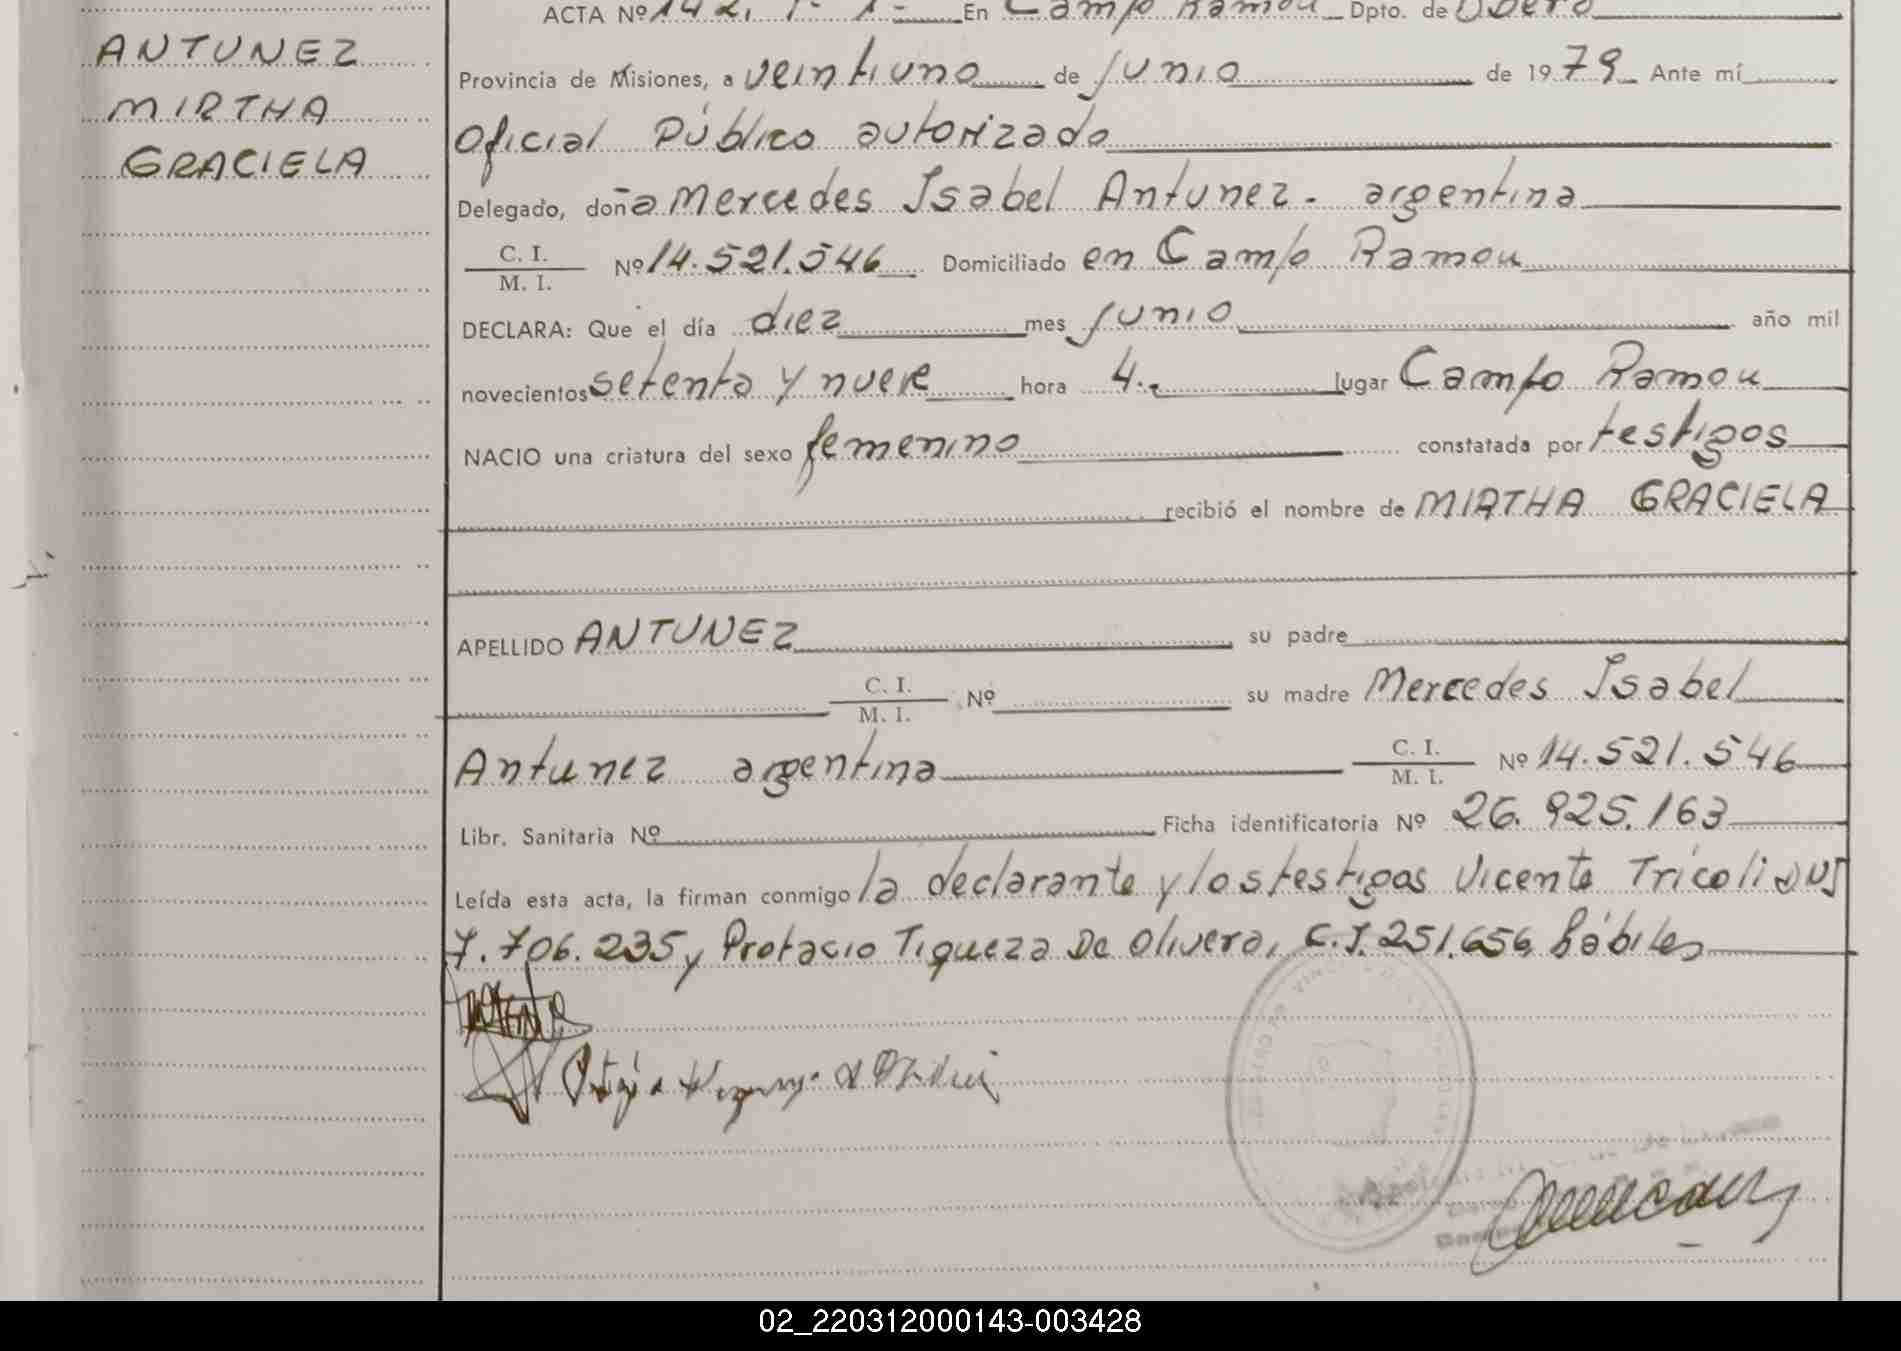 ACTA Nº 142. Tº 1º En Campo Ramou Dpto. de Oberá
ANTUNEZ
MIRTHA
GRACIELA
Provincia de Misiones, a veintiuno de junio de 1979 Ante mí
Oficial Público autorizado
Delegado, doña Mercedes Isabel Antunez. argentina
C. I.
M. I.
Nº 14.521.546 Domiciliado en Campo Ramou
DECLARA: Que el día diez mes junio año mil
novecientos setenta y nueve hora 4. lugar Campo Ramou
NACIO una criatura del sexo femenino constatada por testigos
recibió el nombre de MIRTHA GRACIELA
APELLIDO ANTUNEZ su padre
C. I.
M. I.
Nº su madre Mercedes Isabel
Antunez argentina C. I.
M. I.
Nº 14.521.546
Libr. Sanitaria Nº Ficha identificatoria Nº 26.925.163
Leída esta acta, la firman conmigo la declarante y los testigos Vicente Tricoli DNI
7.706.235 y Protacio Tiqueza De Olivera, C.I. 251.656, hábiles
02_220312000143-003428